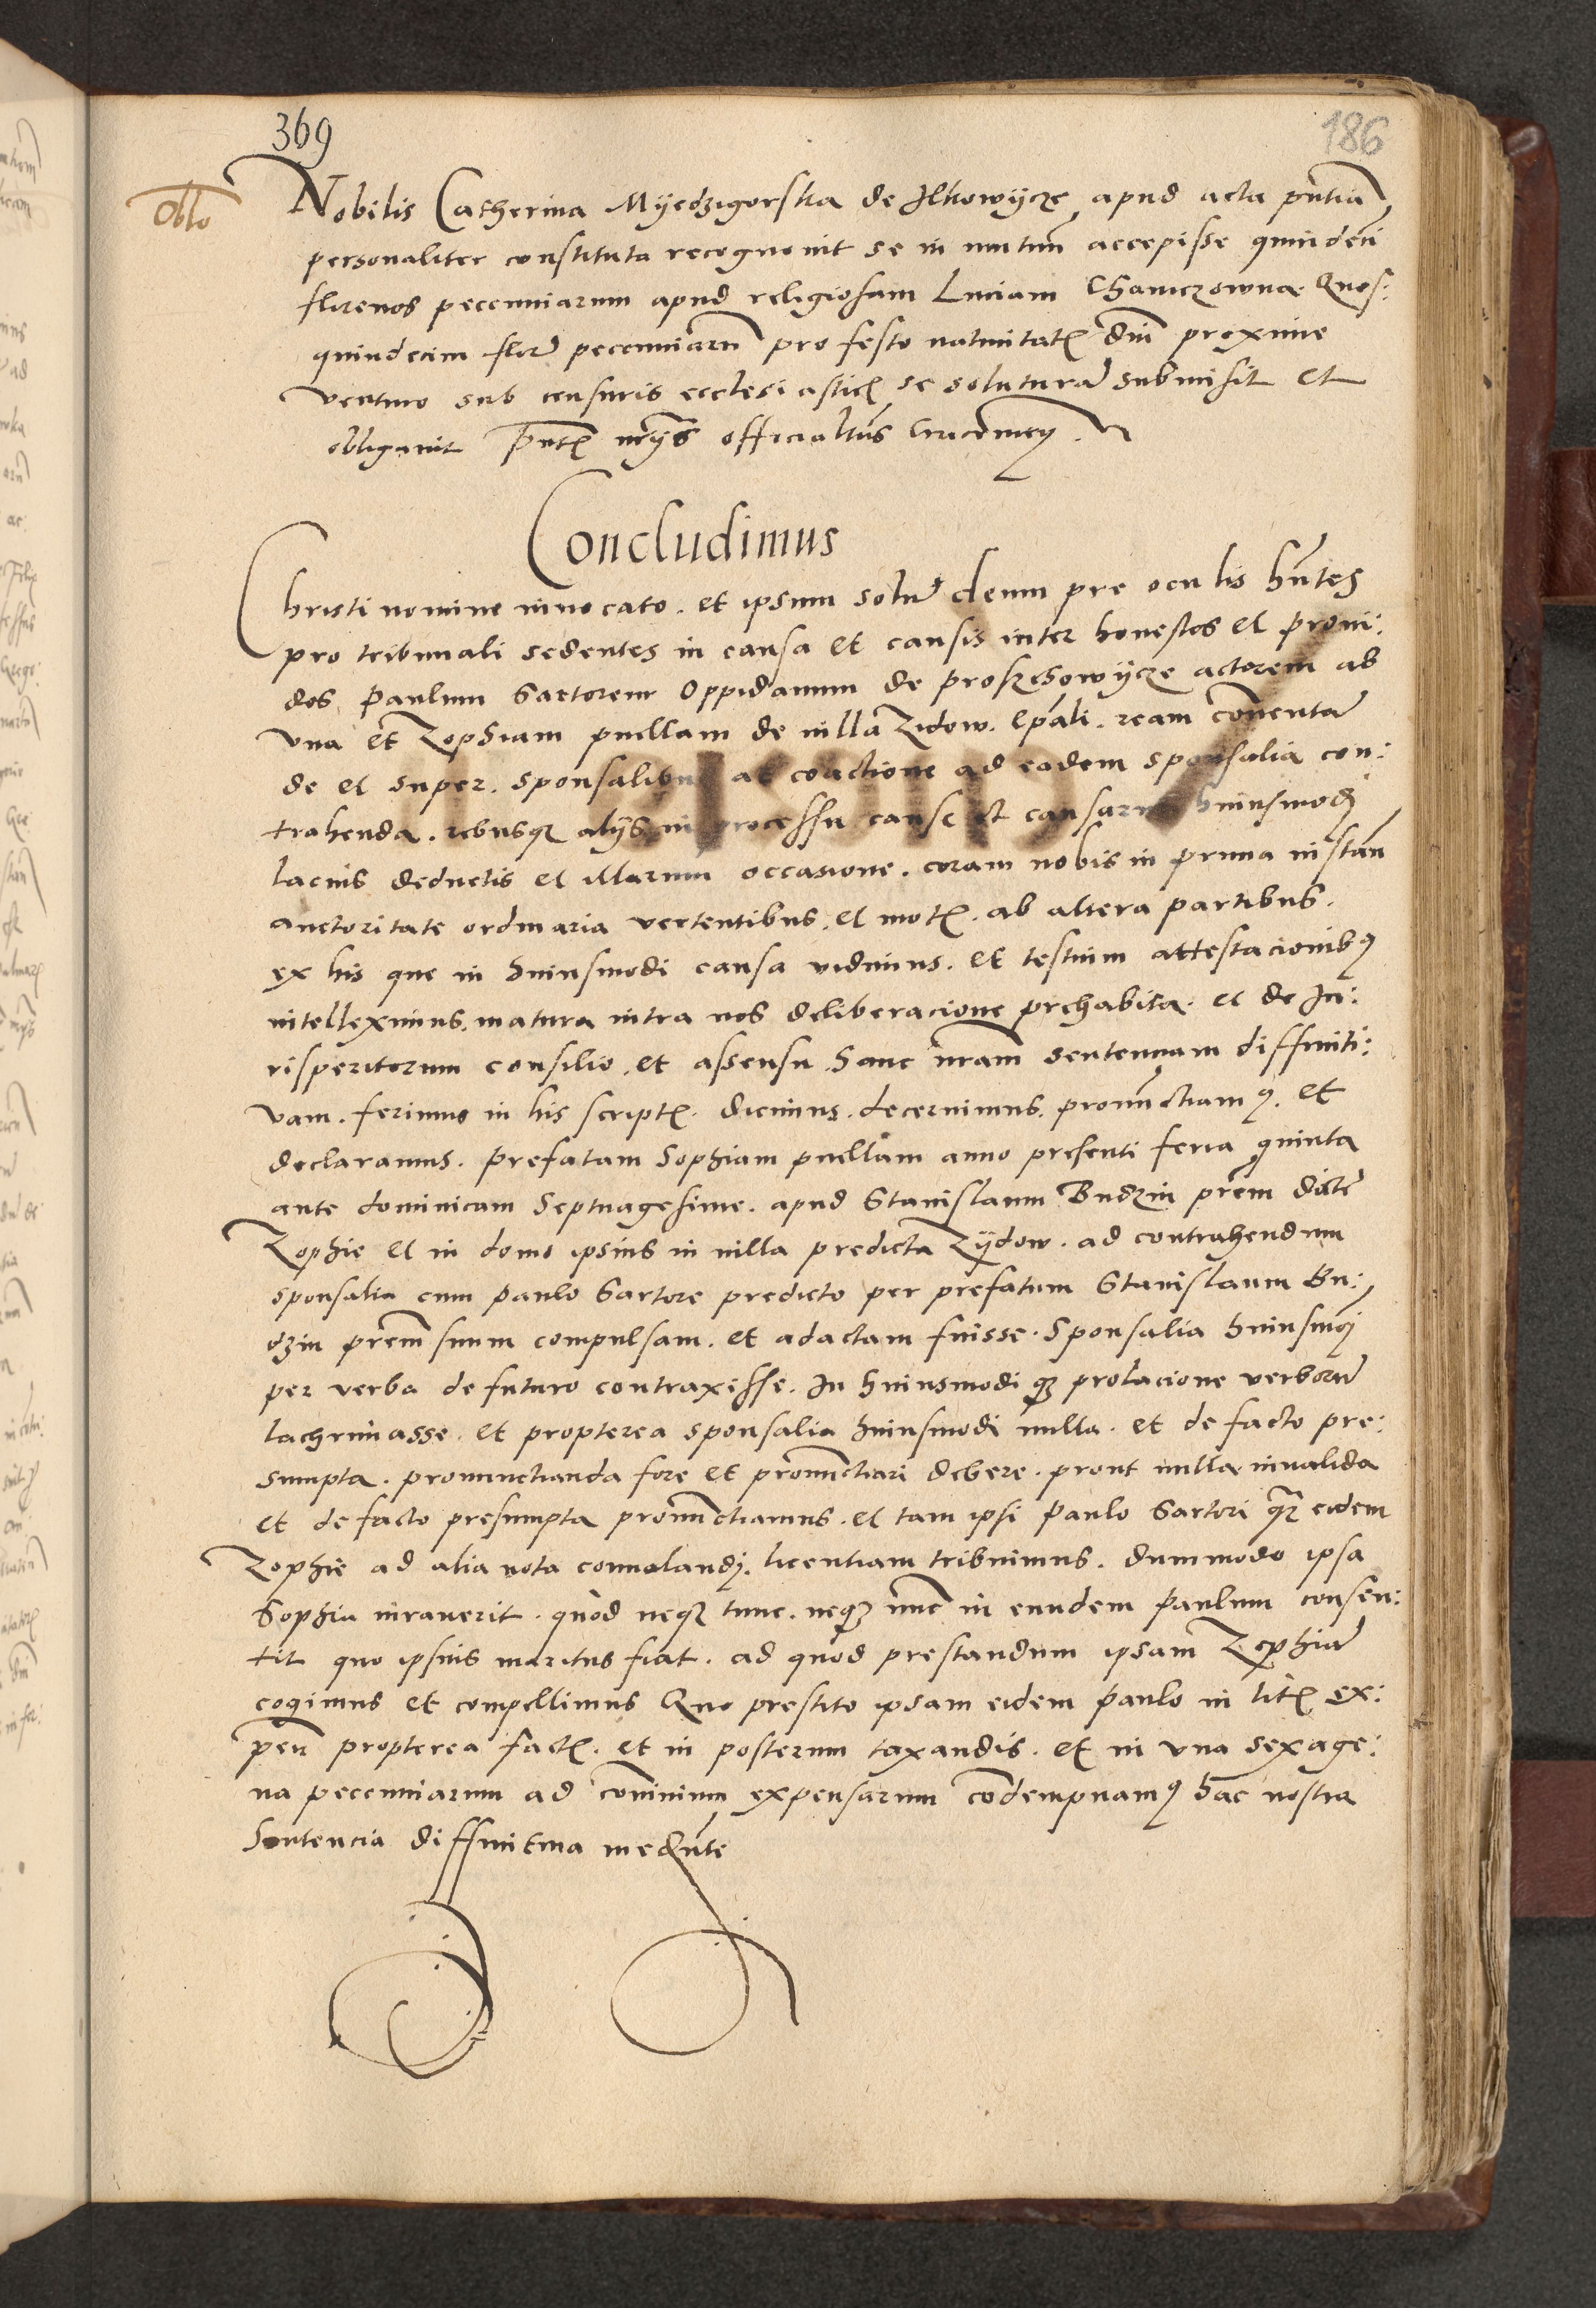 369
186
Oblo
Nobilis Catherina Myedzigorska de Ilkowycze apud acta pntia
personaliter constituta recognovit se in mutuum accepisse quindeci
florenos pecenniarum apud religiosam Luciam Chamczowna Quos:
quindecim flor pecenniaru pro festo nativitatis dni proxime
venturo sub censuris ecclesiasticis se soluturam submisit et
obligavit Pntibus
Concludimus
Christi nomine invocato. et ipsum solum deum pre oculis hntes
pro tribunali sedentes in causa et causis inter honestos et provi:
dos Paulum Sartorem Oppidanum de Proszchowycze actorem ab
una et Zophiam puellam de villa Zidow. Epali. ream conventam
de et super. sponsalibus ac coactione ad eadem sponsalia con:
trahenda. rebusque alijs in processu cause et causarum huiusmodi
lacius deductis et illarum occasione. coram nobis in prima instan
auctoritate ordinaria vertentibus. et motis. ab altera partibus.
ex his que in huiusmodi causa vidimus. et testium attestacionibus
intelleximus. matura intra nos deliberacione prehabita. et de Iu:
risperitorum consilio. et assensu. hanc nram sentenciam diffiniti:
vam. ferimus in his scriptis. dicimus. decernimus. pronunctiamus. et
declaramus. prefatam Sophiam puellam anno presenti feria quinta
ante dominicam Septuagesime. apud Stanislaum Budzin prem dicte
Zophie et in domo ipsius in villa predicta Zydow. ad contrahendum
sponsalia cum Paulo Sartore predicto per prefatum Stanislaum Bu:
dzin prem suum compulsam. et adactam fuisse. Sponsalia huiusmodi
per verba de futuro contraxisse. In huiusmodi que prolacione verborum
lachrimasse. et propterea sponsalia huiusmodi nulla. et de facto pre:
sumpta. pronunctianda fore et pronunctiari debere. prout nulla invalida
et de facto presumpta pronunctiamus. et tam ipsi Paulo Sartori quam eidem
Zophie ad alia vota convolandi. licentiam tribuimus. dummodo ipsa
Sophia iuraverit. quod neque tunc. neque nunc in eundem Paulum consen:
tit quo ipsius maritus fiat. ad quod prestandum ipsam Zophiam
cogimus et compellimus Quo prestito ipsam eidem Paulo in litis ex:
pen propterea factis. et in posterum taxandis. et in una sexage:
na pecenniarum ad cominum expensarum condempnamus hac nostra
Sentencia diffinitiva mediante